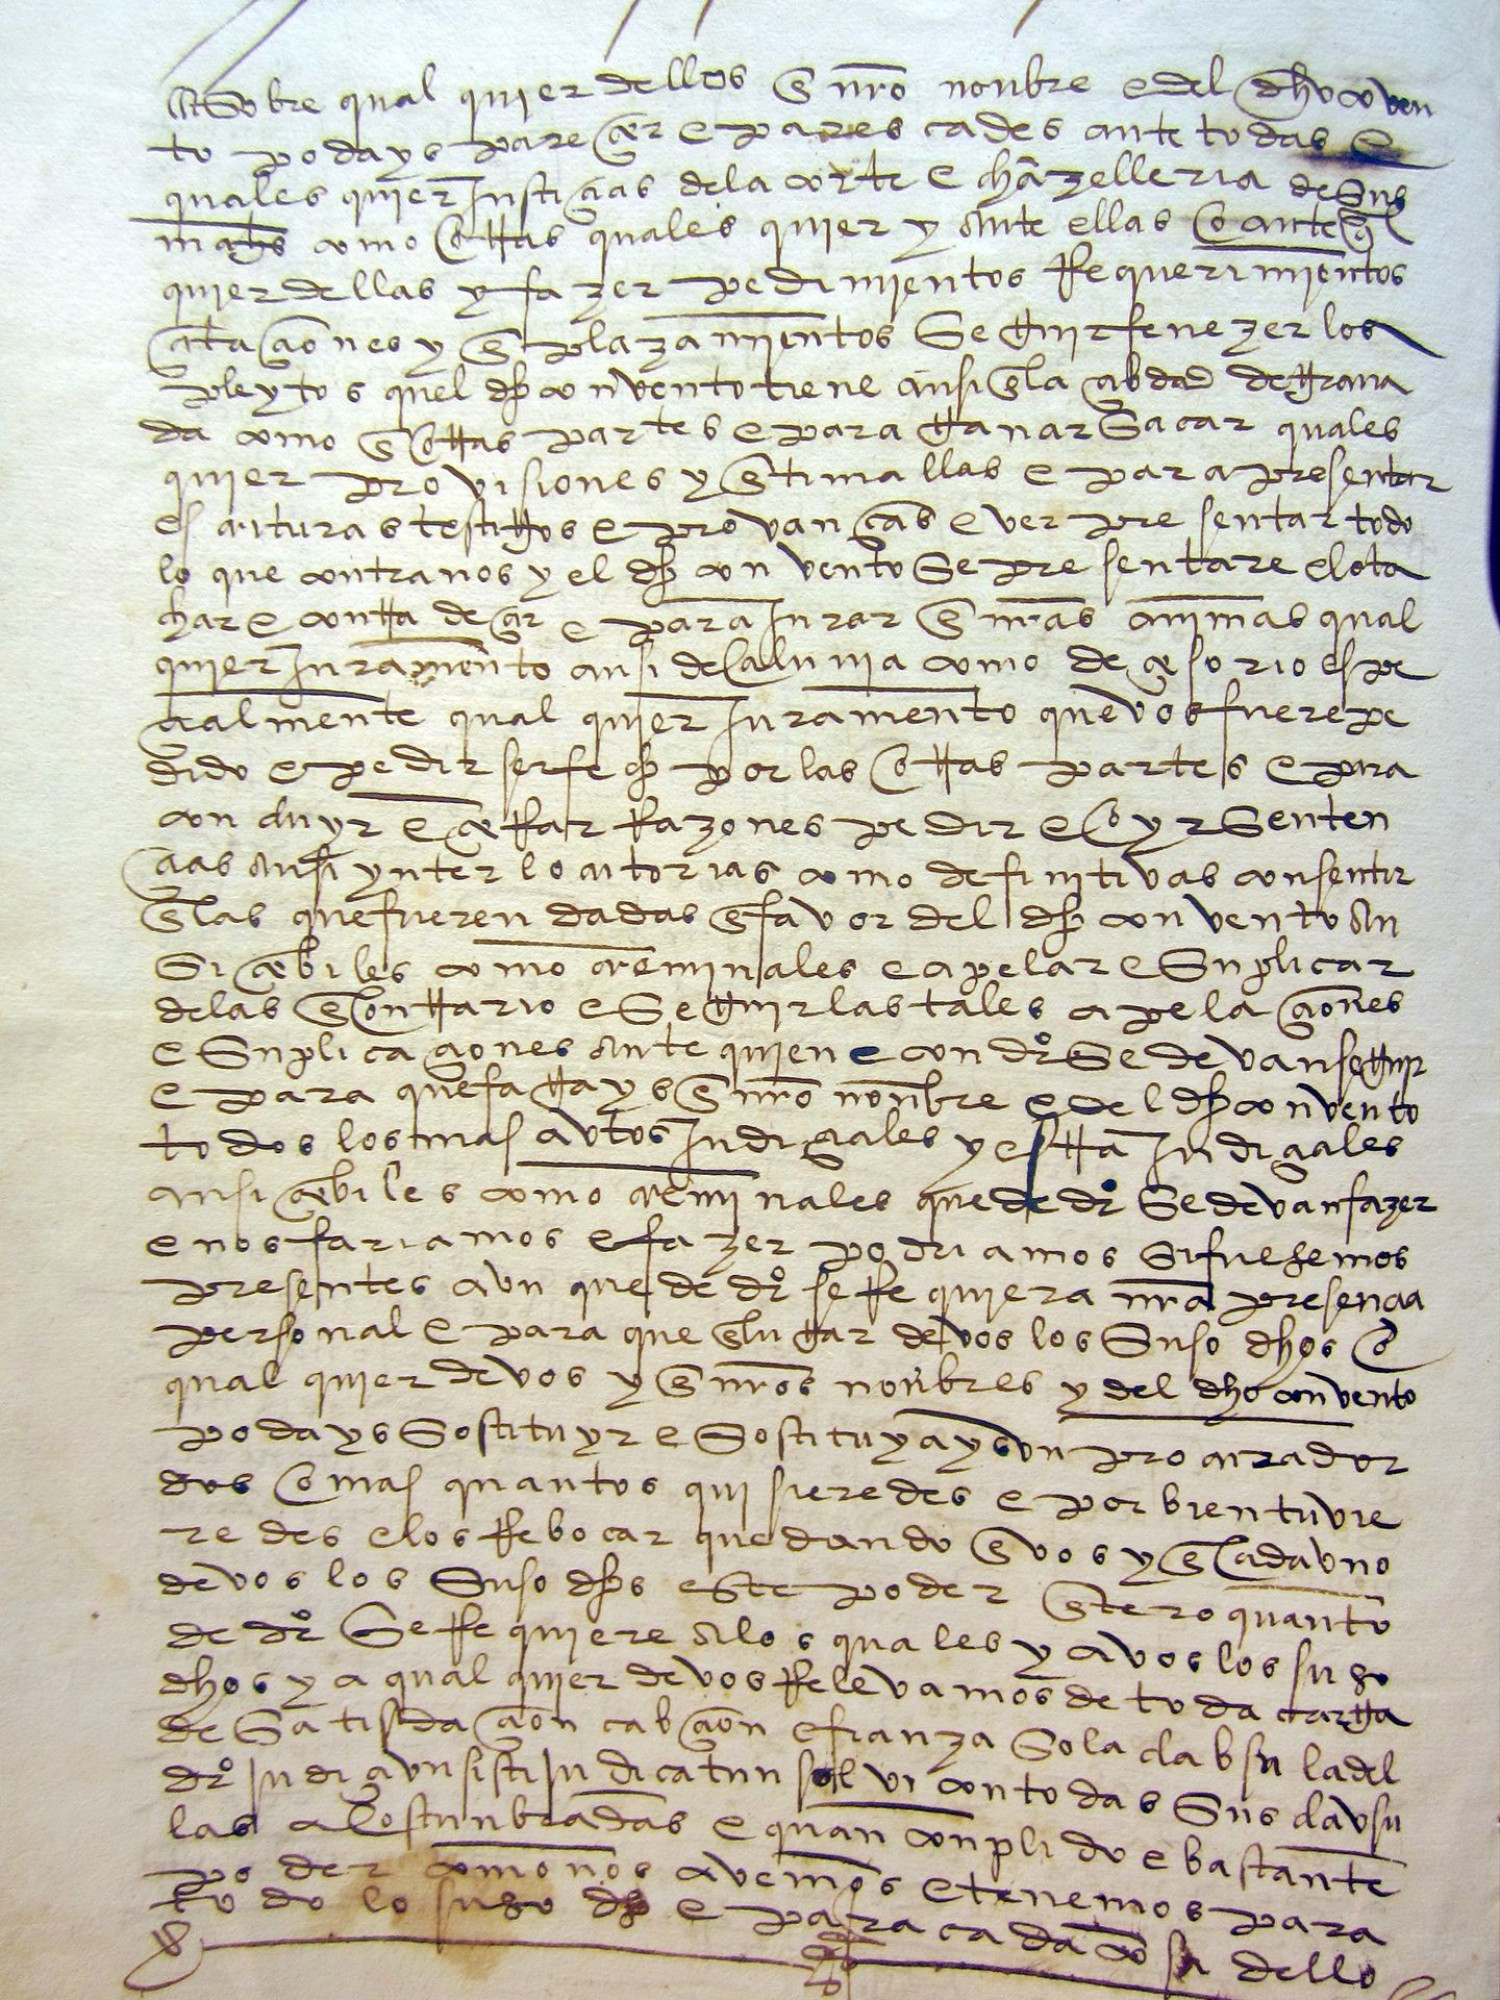 e Sobre qual quier dellos en nro nonbre e del dho conven
to podays parecer e parescades ante todas e
quales quier Justicias dela corte e chãzelleria de Sus
mags como otras quales quier y Ante ellas o ante ql
quier dellas y fazer pedimientos Requerimientos
citaciones y enplazamientos Seguir fenezer los
pleytos quel dho convento tiene ansi en la cibdad de grana
da como en otras partes e para ganar Sacar quales
quier provisiones y entimallas e para presentar
escrituras testigos e provanças e ver presentar todo
lo que contra nos y el dho convento Se presentare e lo ta
char e contra dezir e para Jurar en nras animas qual
quier Juramento ansi de calunia como de cesorio espe
cialmente qual quier Juramento que vos fuere pe
dido e pedir ser fecho por las otras partes e para
concluyr e cerrar Razones pedir e oyr Senten
cias Ansi ynterlocutorias como definitivas consentir
en las que fueren dadas en favor del dho convento An
Si cebiles como creminales e apelar e Suplicar
delas en contrario e Seguir las tales apelaciones
e Suplicaciones Ante quien e con dro Se devan seguir
e para que fagays en nro nonbre e del dho convento
todos los mas avtos Judiciales y estra Judiciales
ansi cebiles como creminales que de dro Se devan fazer
e nos fariamos e fazer podriamos Si fuesemos
presentes aun que de dro se Requiera nra presencia
personal e para que en lugar de vos los Suso dhos o
qual quier de vos y en nros nonbres y del dho convento
podays Sostituyr e Sostituyays un procurador
dos o mas quantos quisieredes e por bien tuvie
redes e los Rebocar quedando en vos y en cada uno
de vos los Suso dhos este poder entero quanto
de dro Se Requiere A los quales y a vos los suso
dhos y a qual quier de vos Relevamos de toda carga
de Satisdacion cabcion e fianza So la clabsula del
dro Judiciun sisti Judicatun solvi con todas Sus clavsu
las acostunbradas e quan conplido e bastante
poder como nos avemos e tenemos para
todo lo suso dho e para cada cosa dello